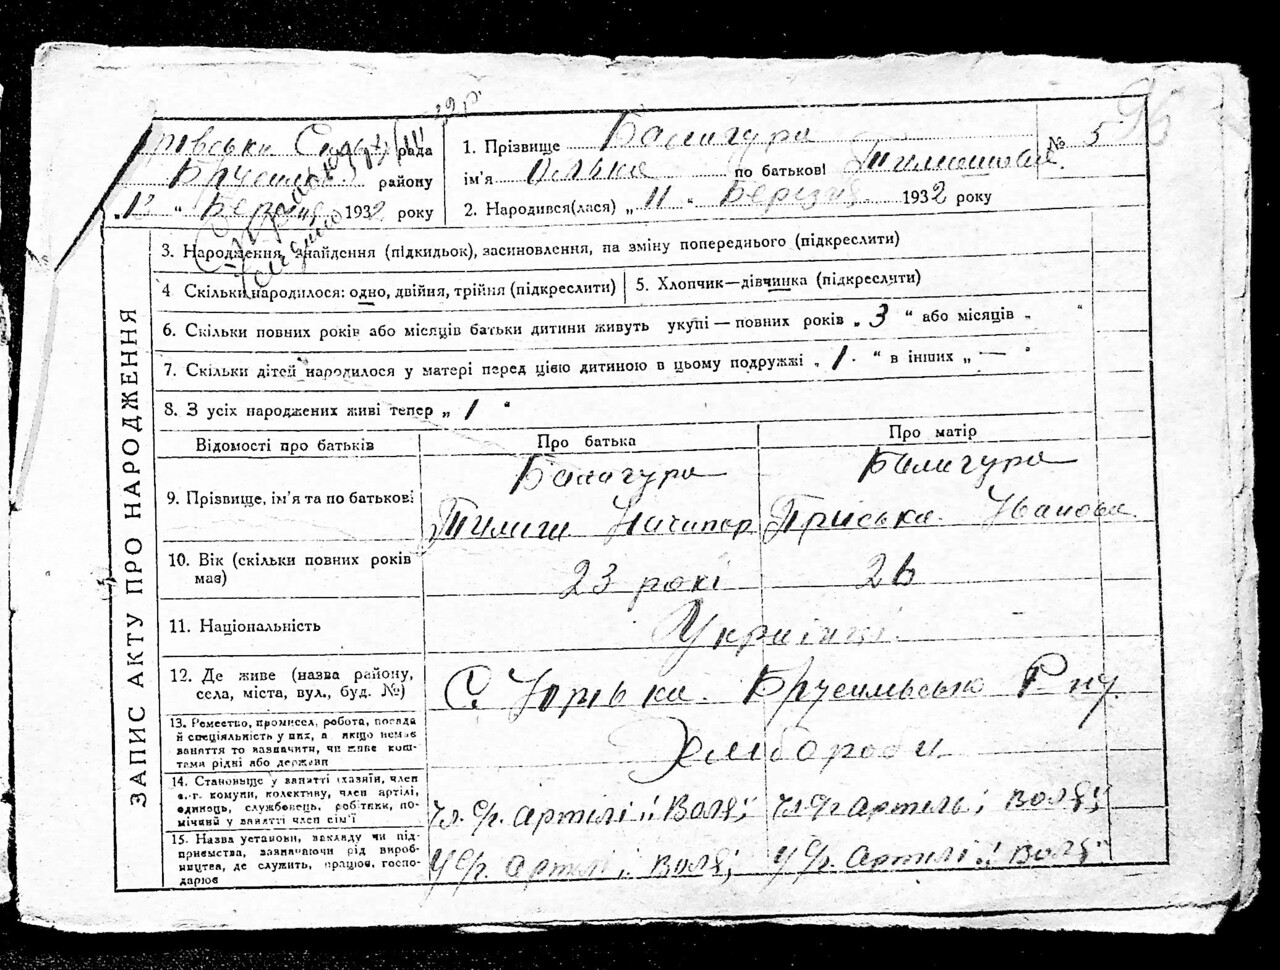 96
рівська Сіль рада
Брусилів району
"12 " Березня 1932 року
1. Прізвище Балагура
ім'я Олька по батькові Тимошова
№ 5
2. Народився(лася) „ 11 “ Березня 1932 року
ЗАПИС АКТУ ПРО НАРОДЖЕННЯ
3. Народження, знайдення (підкидьок), засиновлення, на зміну попереднього (підкреслити)
4 Скільки народилося: одно, двійня, трійня (підкреслити)
5. Хлопчик—дівчинка (підкреслити)
6. Скільки повних років або місяців батьки дитини живуть укупі — повних років „ 3 “ або місяців „ “
7. Скільки дітей народилося у матері перед цією дитиною в цьому подружжі „ 1 · “ в інших „ — “
8. З усіх народжених живі тепер „ 1 “
Відомості про батьків
Про батька
Про матір
9. Прізвище, ім'я та по батькові
Балагура
Тимиш Ничипор
Балагура
Приська Иванова
10. Вік (скільки повних років
має)
23 рокі
26
11. Національність
Украінці
12. Де живе (назва району,
села, міста, вул., буд. №)
С. Юрівка. Брусильського Р-ну.
13. Ремество, промисел, робота, посада
й спеціяльність у них, а якщо немає
заняття то зазначити, чи живе кош-
тами рідні або держави
Хлібороби
14. Становище у занятті (хазяїн, член
с.-г. комуни, колективу, член артілі,
одинець, службовець, робітник, по-
мічний у занятті член сім'ї
Чл. С/г. артілі „ Воля"
Чл. С/г артілі „ Воля"
15. Назва установи, закладу чи під-
приємства, зазначаючи рід вироб-
ництва, де служить, працює, госпо-
дарює
У С/г. артілі „ Воля"
У С/г. Артілі „ Воля"